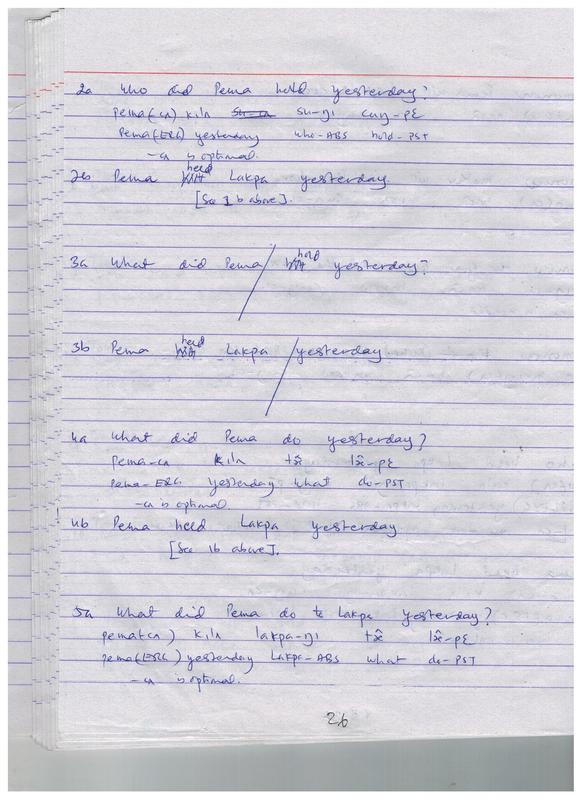 2a Who did Pema hold yesterday?
pema(-ɕa) kiln su-ŋi cuŋ-pɛ
Pema(ERG) yesterday who-ABS hold-PST
-ɕa is optional.
2b Pema held Lakpa yesterday.
[See 1b above].
3a What did Pema hold yesterday?
3b Pema held Lakpa yesterday.
4a What did Pema do yesterday?
pema-ɕa kiln tɜ̂ lɜ̂-pɛ
pema-ERG yesterday what do-PST
-ɕa is optional.
4b Pema held Lakpa yesterday
[See 1b above].
5a What did Pema do to Lakpa yesterday?
pema(-ɕa) kiln lakpa-ŋi tɜ̂ lɜ̂-pɛ
pema(ERG) yesterday Lakpa-ABS what do-PST
-ɕa is optional.
26